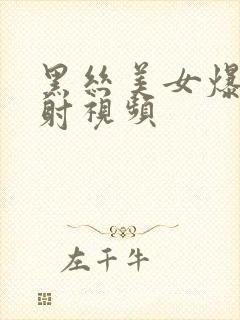 黑絲美女爆
射視頻
左千牛